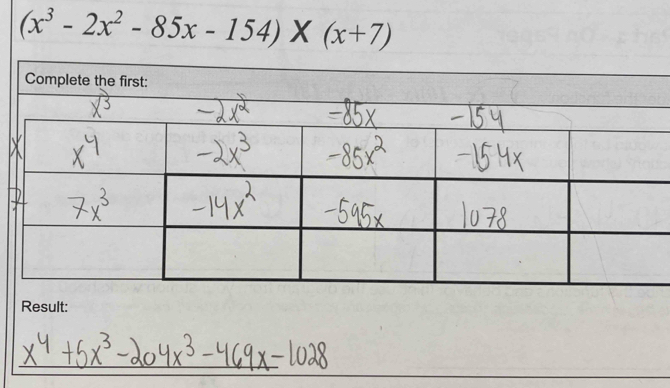 (x³ - 2x² - 85x - 154) X (x+7)
Complete the first:
x³ -2x² -85x -154
x x⁴ -2x³ -85x² -154x
7 7x³ -14x² -595x 1078
Result:
x⁴ +5x³ -204x³ -469x -1028